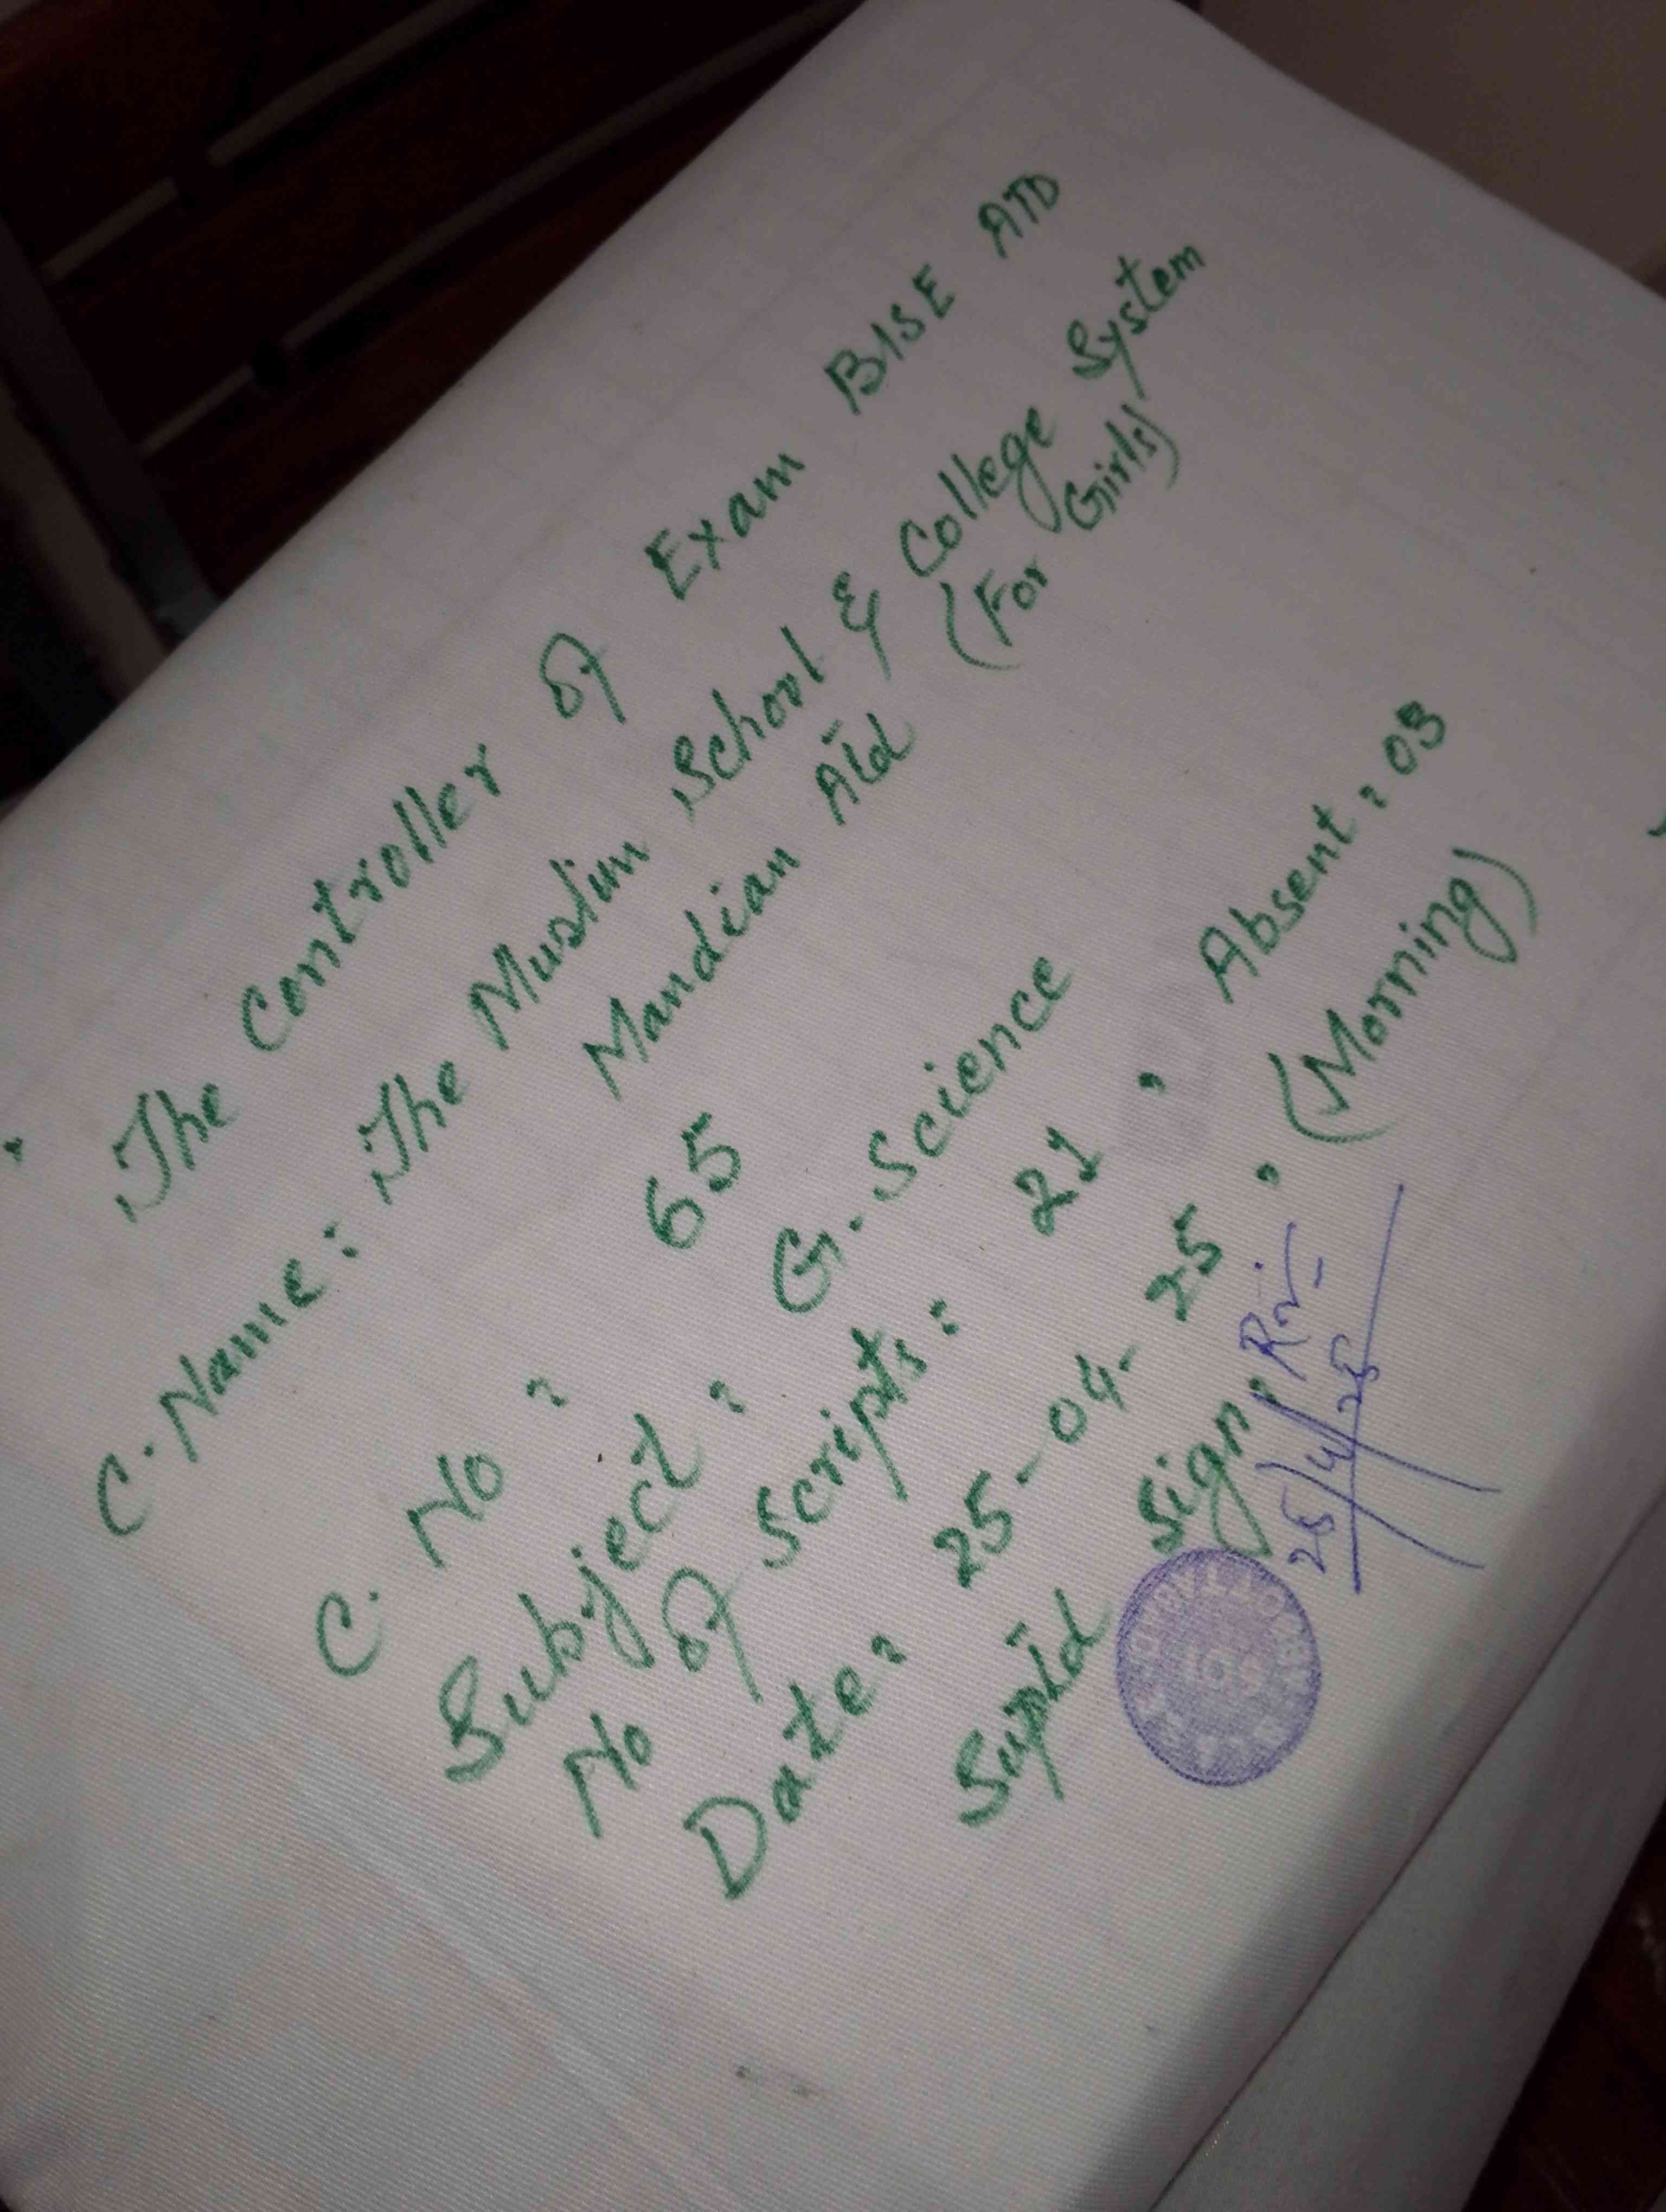 The Controller of Exam BISE ATD
C. Name: The Muslim School & College System
Mandian Atd (For Girls)
C. No : 65
Subject : G. Science
No of Scripts: 21 , Absent : 03
Date: 25-04-25 , (Morning)
Suptd Sign:
25/4/25